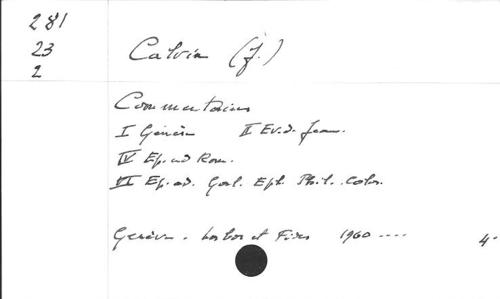 281
23
2
Calvin (J.)
Commentaires
I Genèse II Ev. d. Jean.
IV Ep. ad Rom.
VI Ep. ad. Gal. Eph. Phil. Colos.
Genève. Labor et Fides 1960 .... 4°